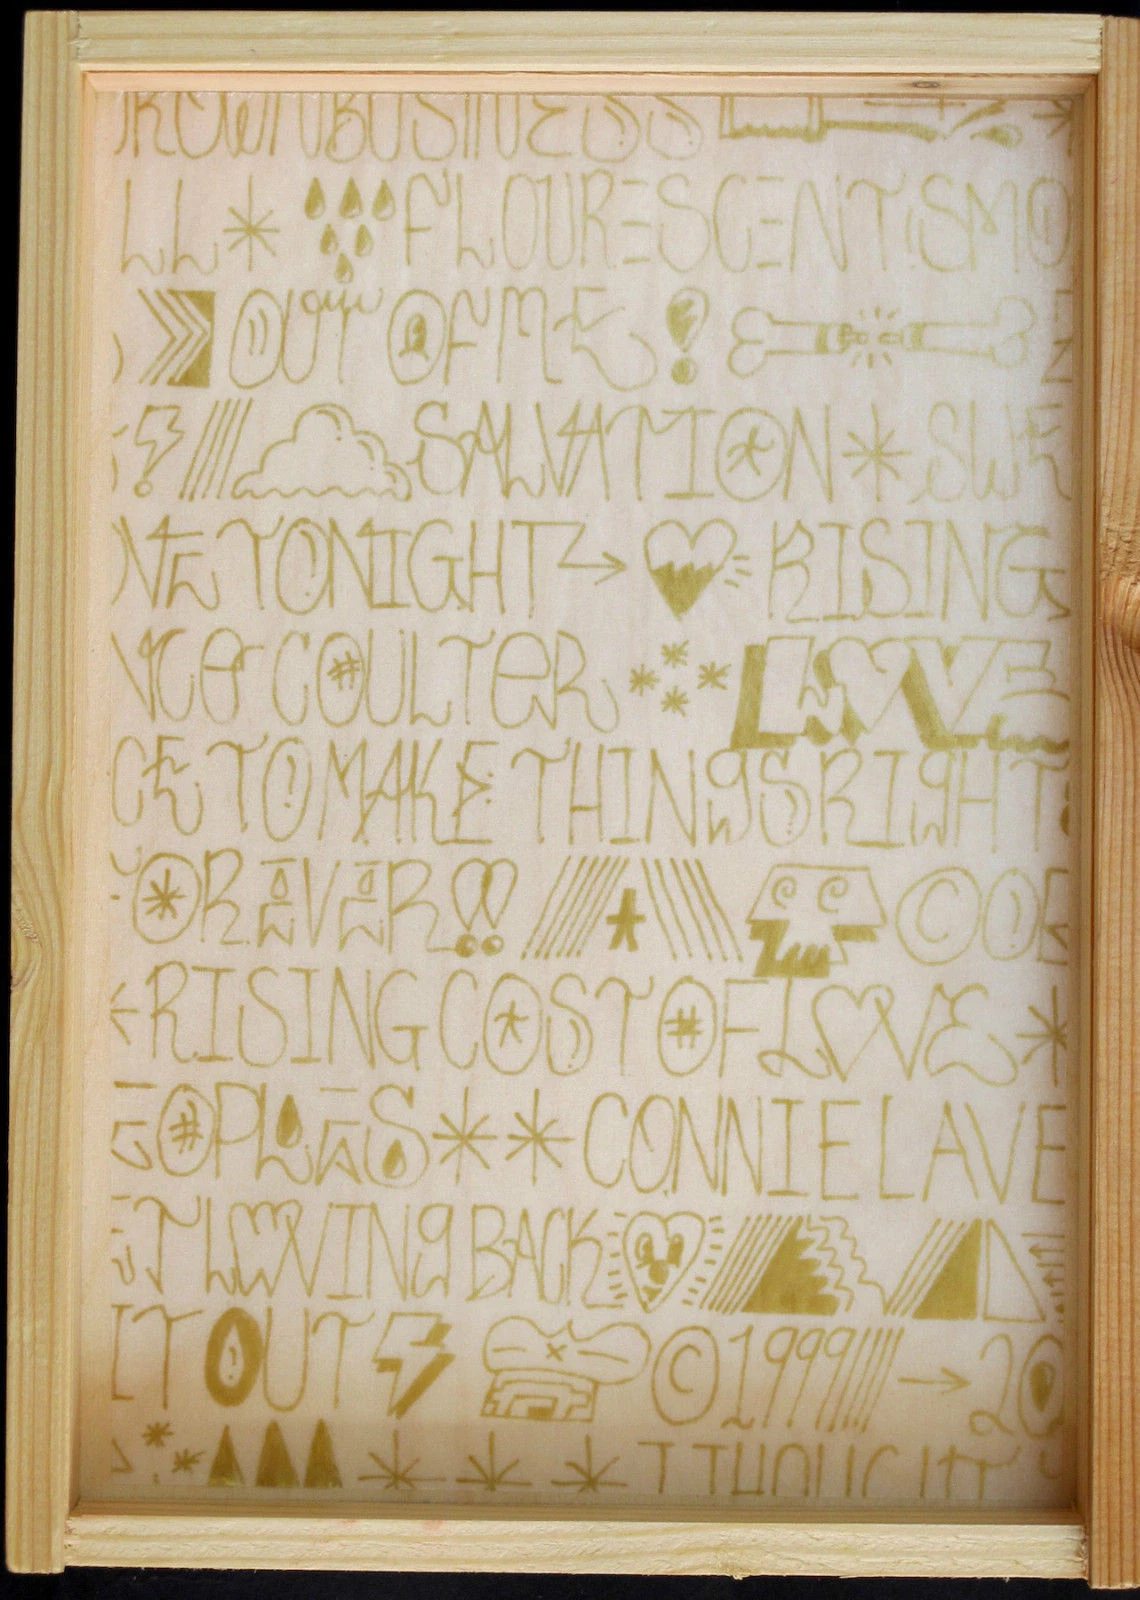 R OWN BUSINESS
LL * FLOURESCENT SMO
OUT OF ME!
SALVATION * SWE
NE TONIGHT → RISING
NCE COULTER LOVE
CE TO MAKE THINGS RIGHT
OREVER!! COE
RISING COST OF LOVE *
EOPLES ** CONNIE LAVE
T LOVING BACK
IT OUT © 1999 → 20
I THOUGHT